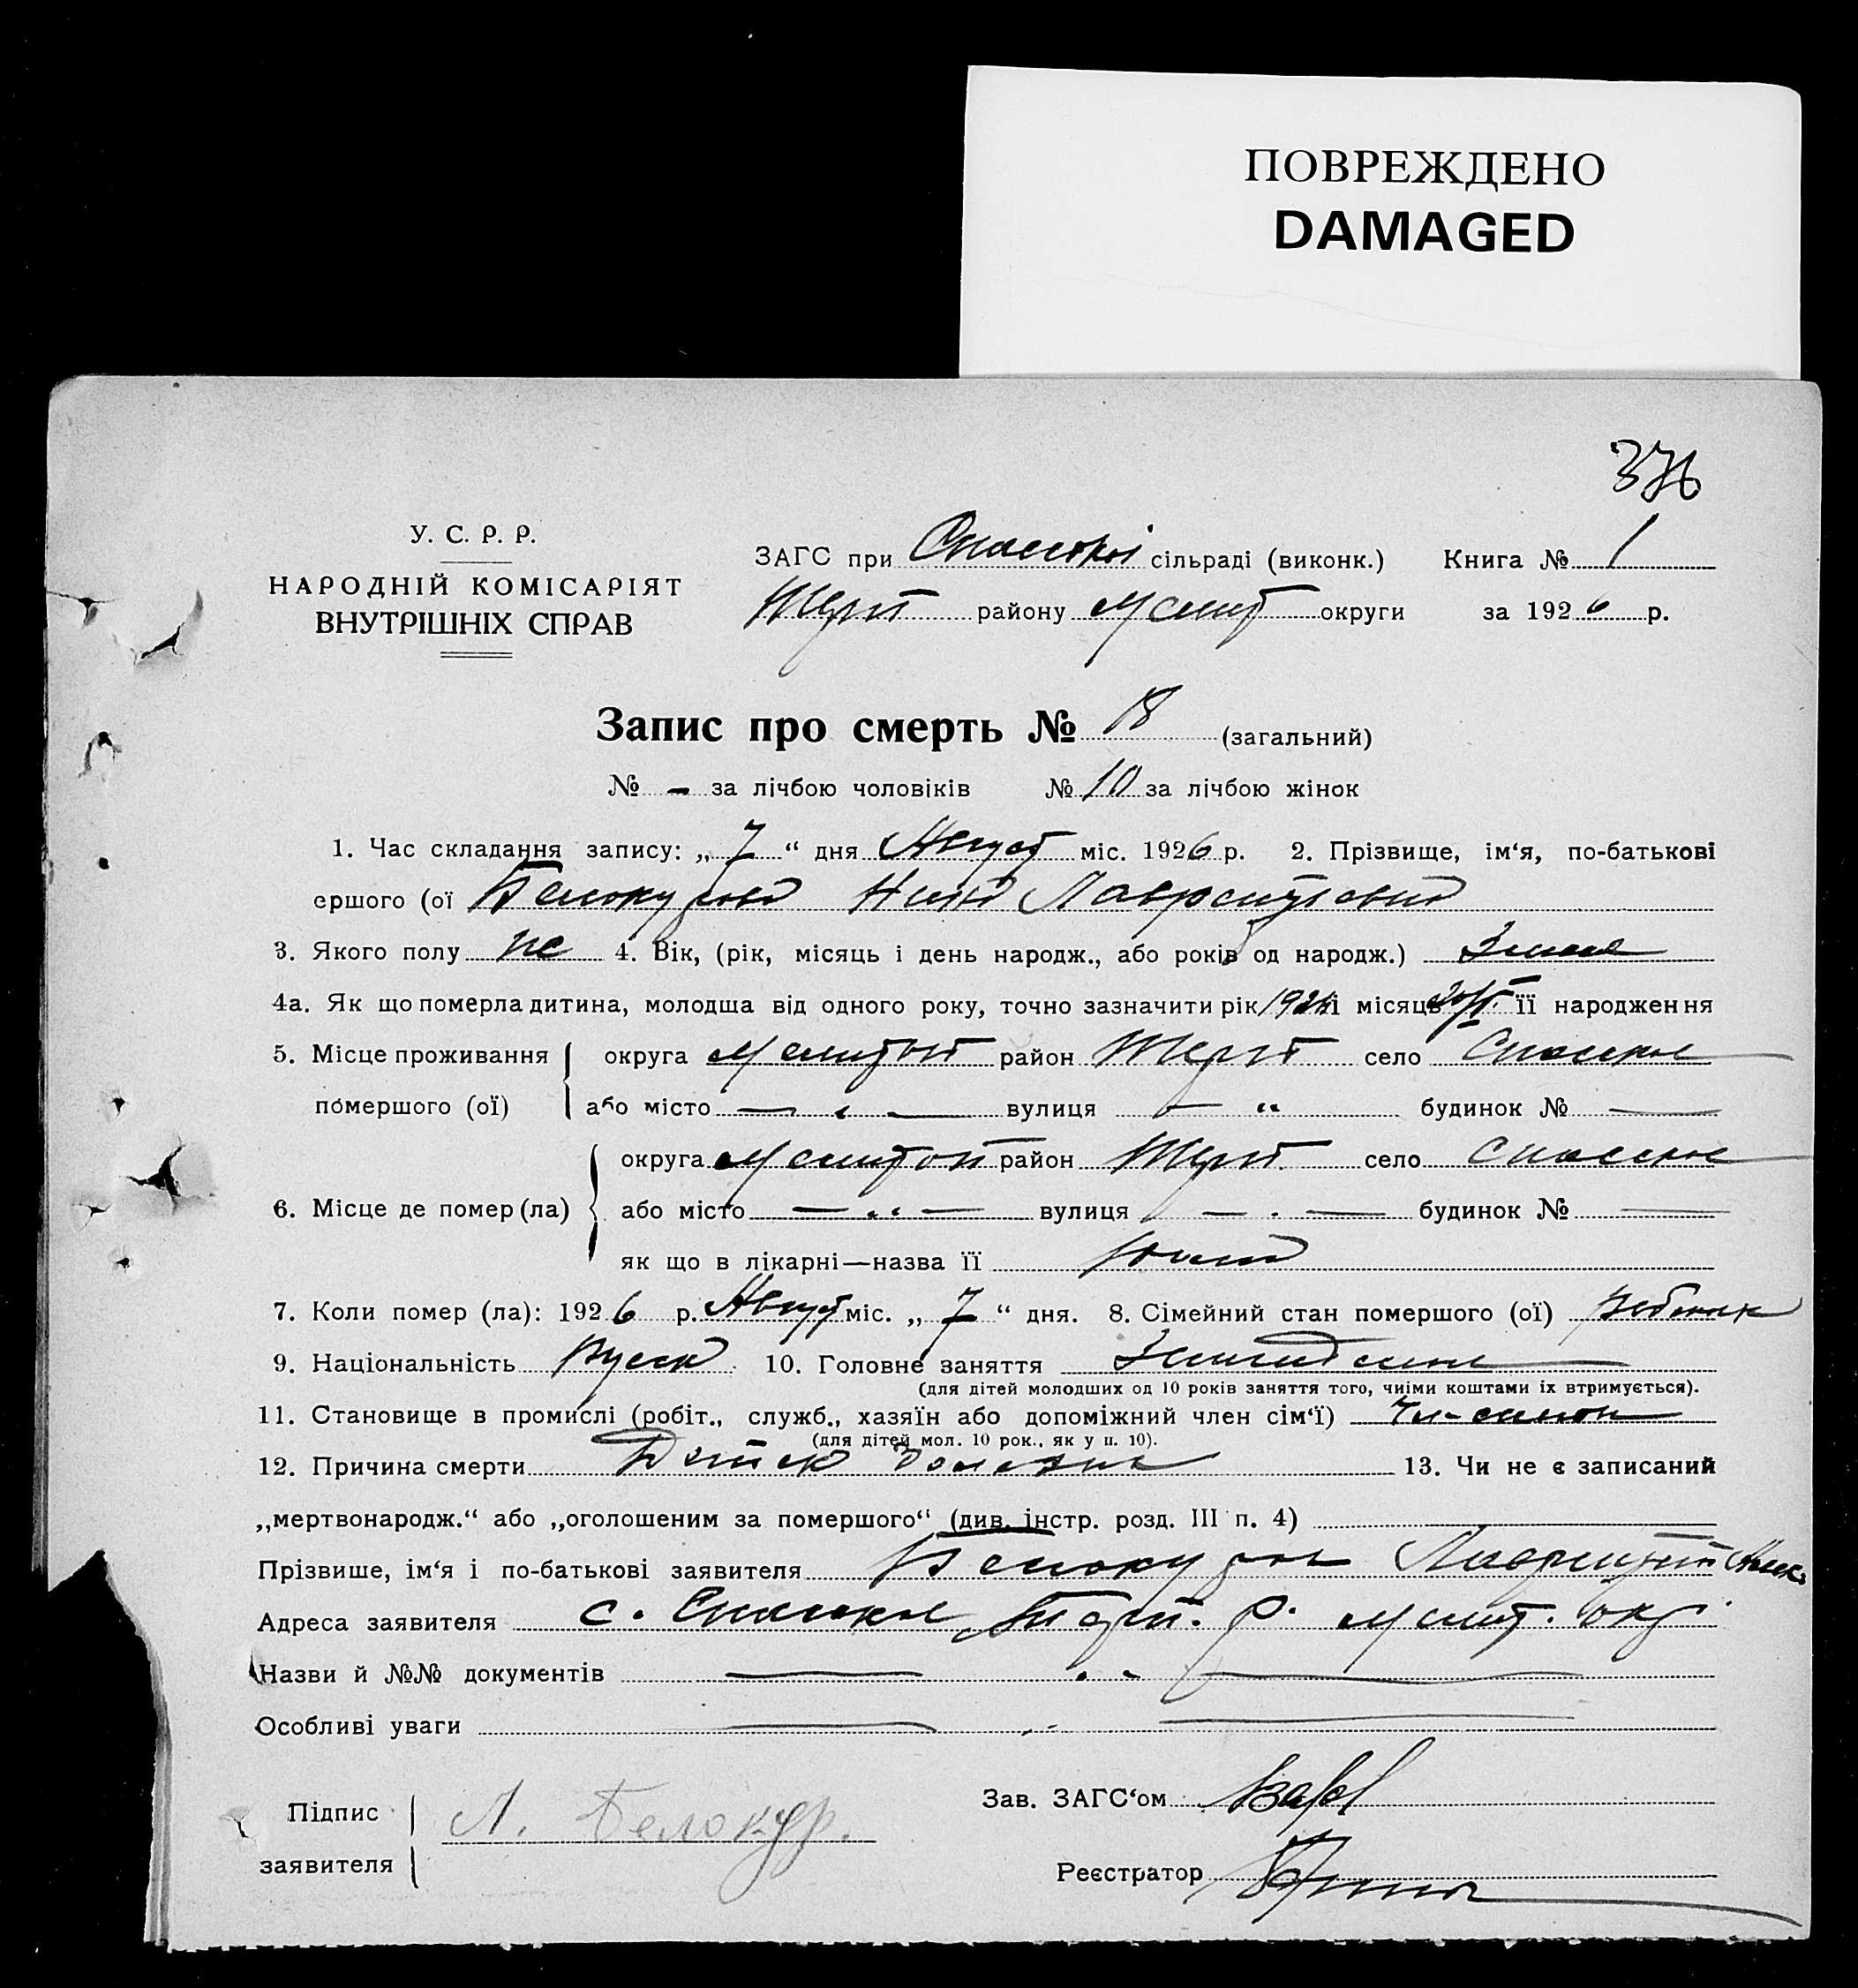 ПОВРЕЖДЕНО
DAMAGED
376
У. С. Р. Р.
НАРОДНІЙ КОМІСАРІЯТ
ВНУТРІШНІХ СПРАВ
ЗАГС при Спасской сільраді (виконк.) Книга № 1
району Мелит округи за 1926 р.
Запис про смерть № 18 (загальний)
№ - за лічбою чоловіків № 10 за лічбою жінок
1. Час складання запису: „ 7 “ дня Август міс. 1926 р. 2. Прізвище, ім‘я, по-батькові
ершого (ої Белокурова Нина Лаврентьевна
3. Якого полу же 4. Вік, (рік, місяць і день народж., або років од народж.)
4а. Як що померла дитина, молодша від одного року, точно зазначити рік 1926 і місяць її народження
5. Місце проживання округа Мелитоп район село Спасское
помершого (ої) або місто — „ — вулиця — „ будинок № —
округа Мелитоп район село Спасское
6. Місце де помер (ла) або місто — „ — вулиця — . — будинок № —
як що в лікарні—назва її
7. Коли помер (ла): 1926 р. Август міс. „ 7 “ дня. 8. Сімейний стан помершого (ої) Ребенок
9. Національність Руск 10. Головне заняття Земледелие
(для дітей молодших од 10 років заняття того, чиїми коштами їх втримується).
11. Становище в промислі (робіт., служб., хазяїн або допоміжний член сім‘ї)
(для дітей мол. 10 рок., як у п. 10).
12. Причина смерти Детск болезнь 13. Чи не є записаний
„мертвонародж.“ або „оголошеним за помершого“ (див. інстр. розд. III п. 4)
Прізвише, ім‘я і по-батькові заявителя Белокуров Лаврентий Алек.
Адреса заявителя с. Спаское р. Мелит. окр.
Назви й №№ документів — „ —
Особливі уваги — „ —
Підпис Л. Белокур.
заявителя
Зав. ЗАГС‘ом
Реєстратор